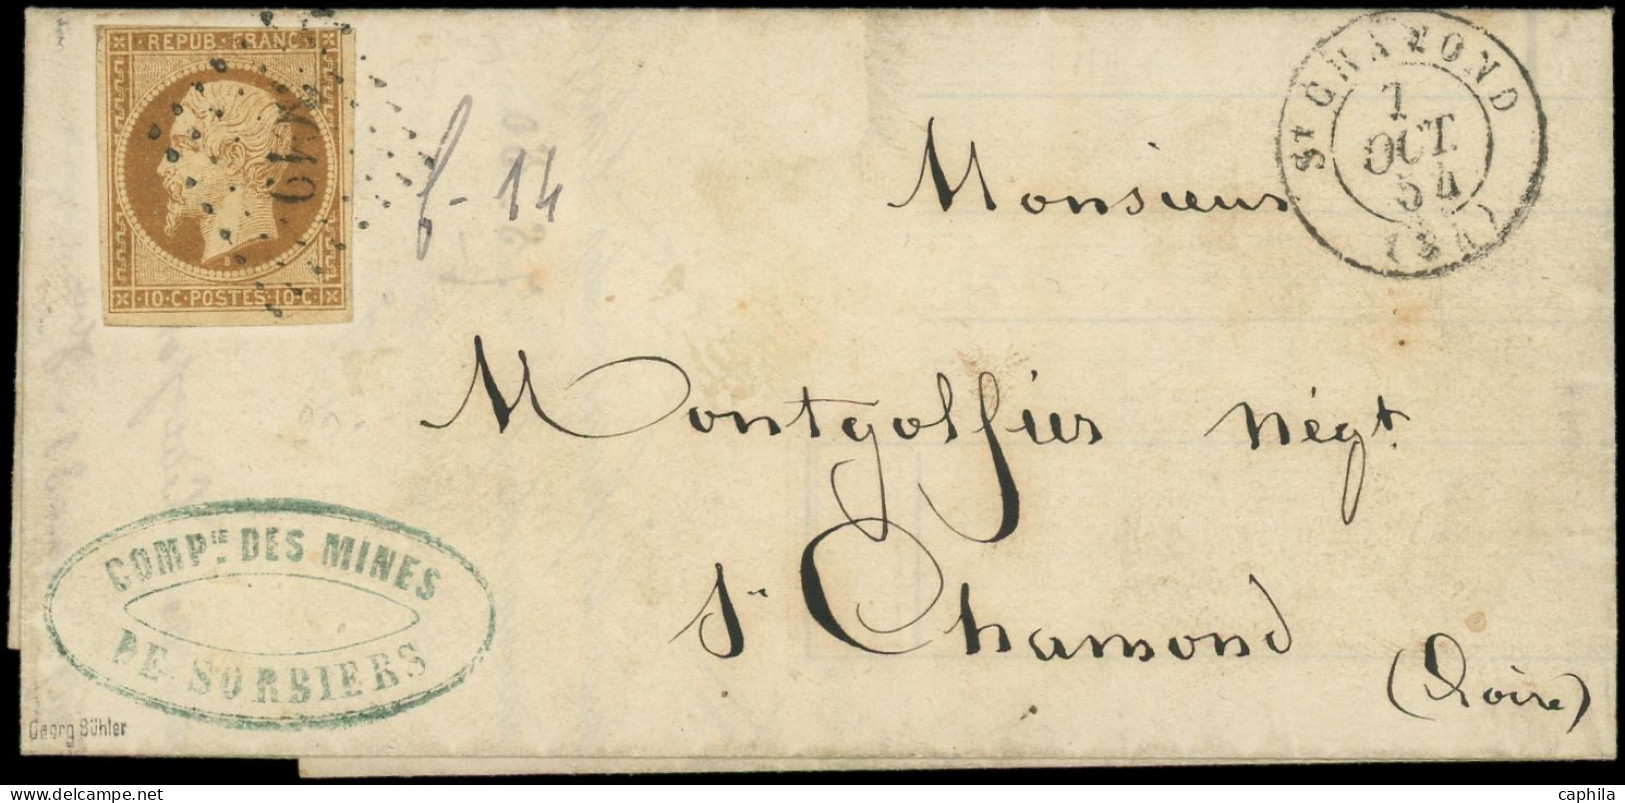 REPUB FRANC
10·C·POSTES·10·C
f- 14
Monsieur
Montgolfier Négt
St Chamond
(Loire)
ST CHAMOND
7
OCT.
54
(84)
COMPIE DES MINES
DE SORBIERS
Georg Bühler
caphila